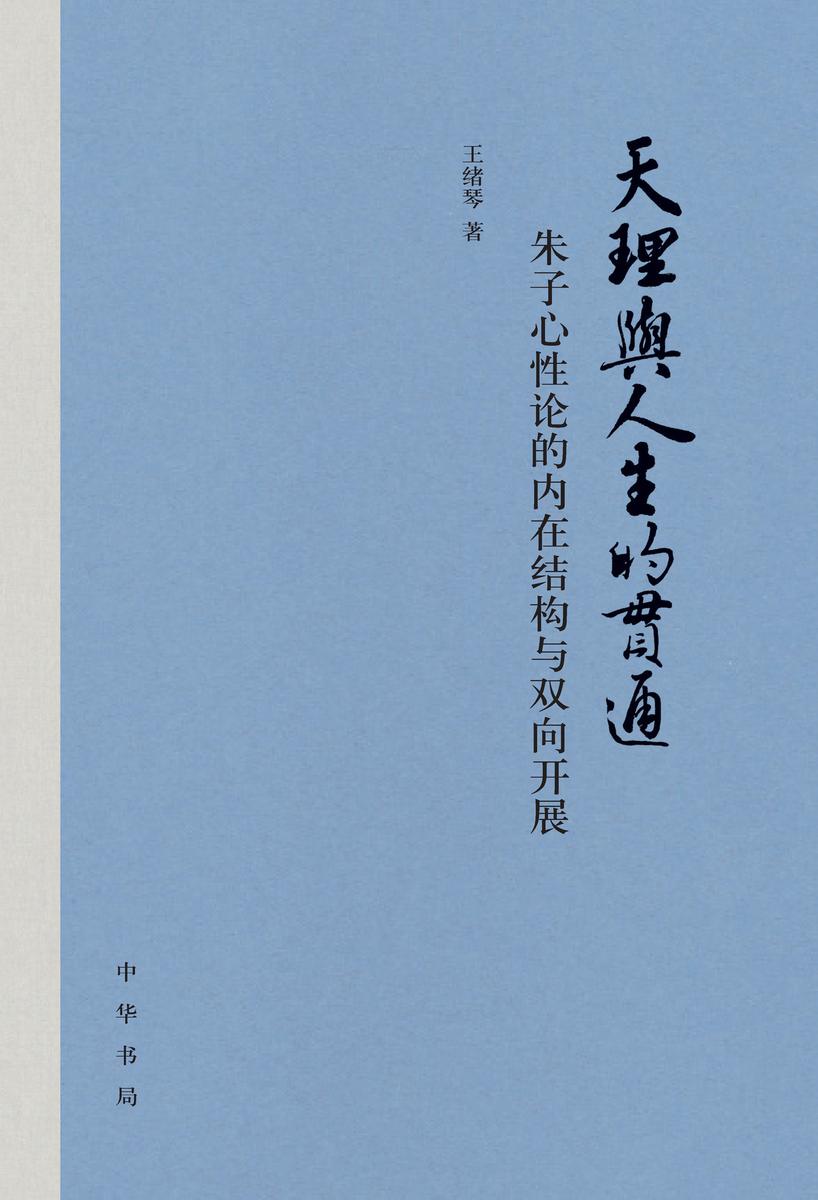 天理與人生的貫通
朱子心性论的内在结构与双向开展
王绪琴 著
中华书局